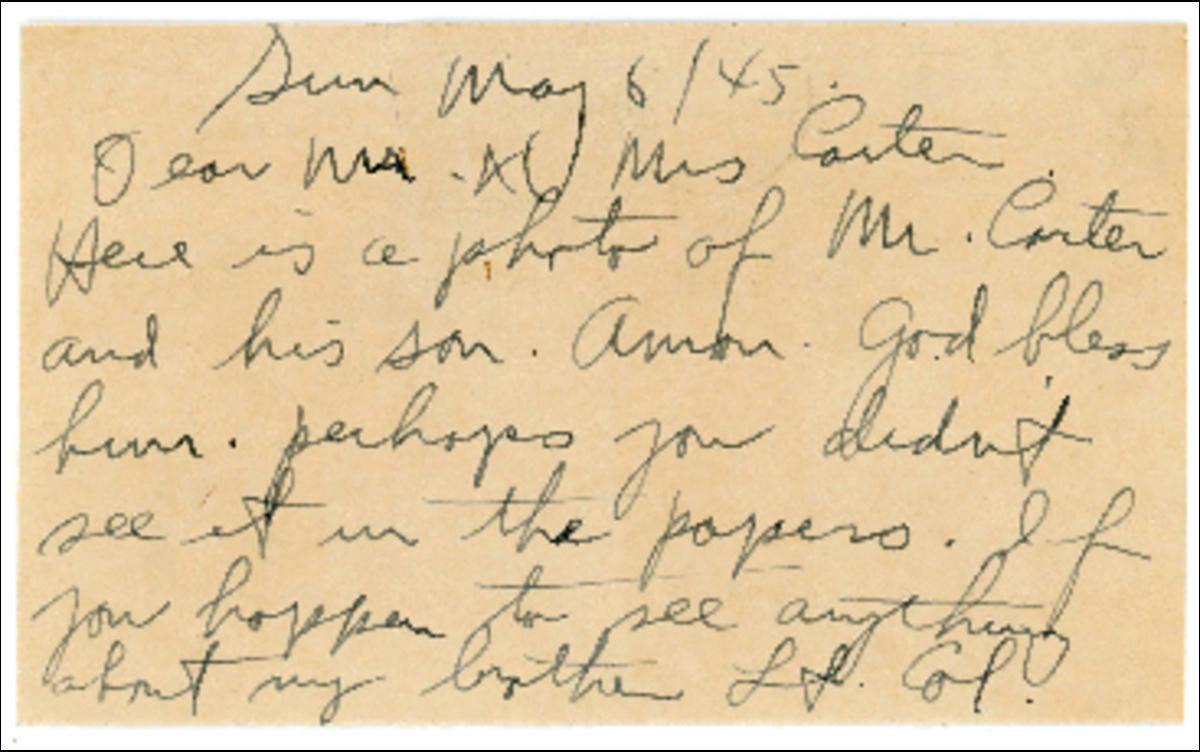 Sun May 6/45.
Dear Mr. & Mrs Carter.
Here is a photo of Mr. Carter
and his son. Amon. God bless
him. perhaps you didn't
see it in the papers. If
you happen to see anything
about my brother Lt. Col.